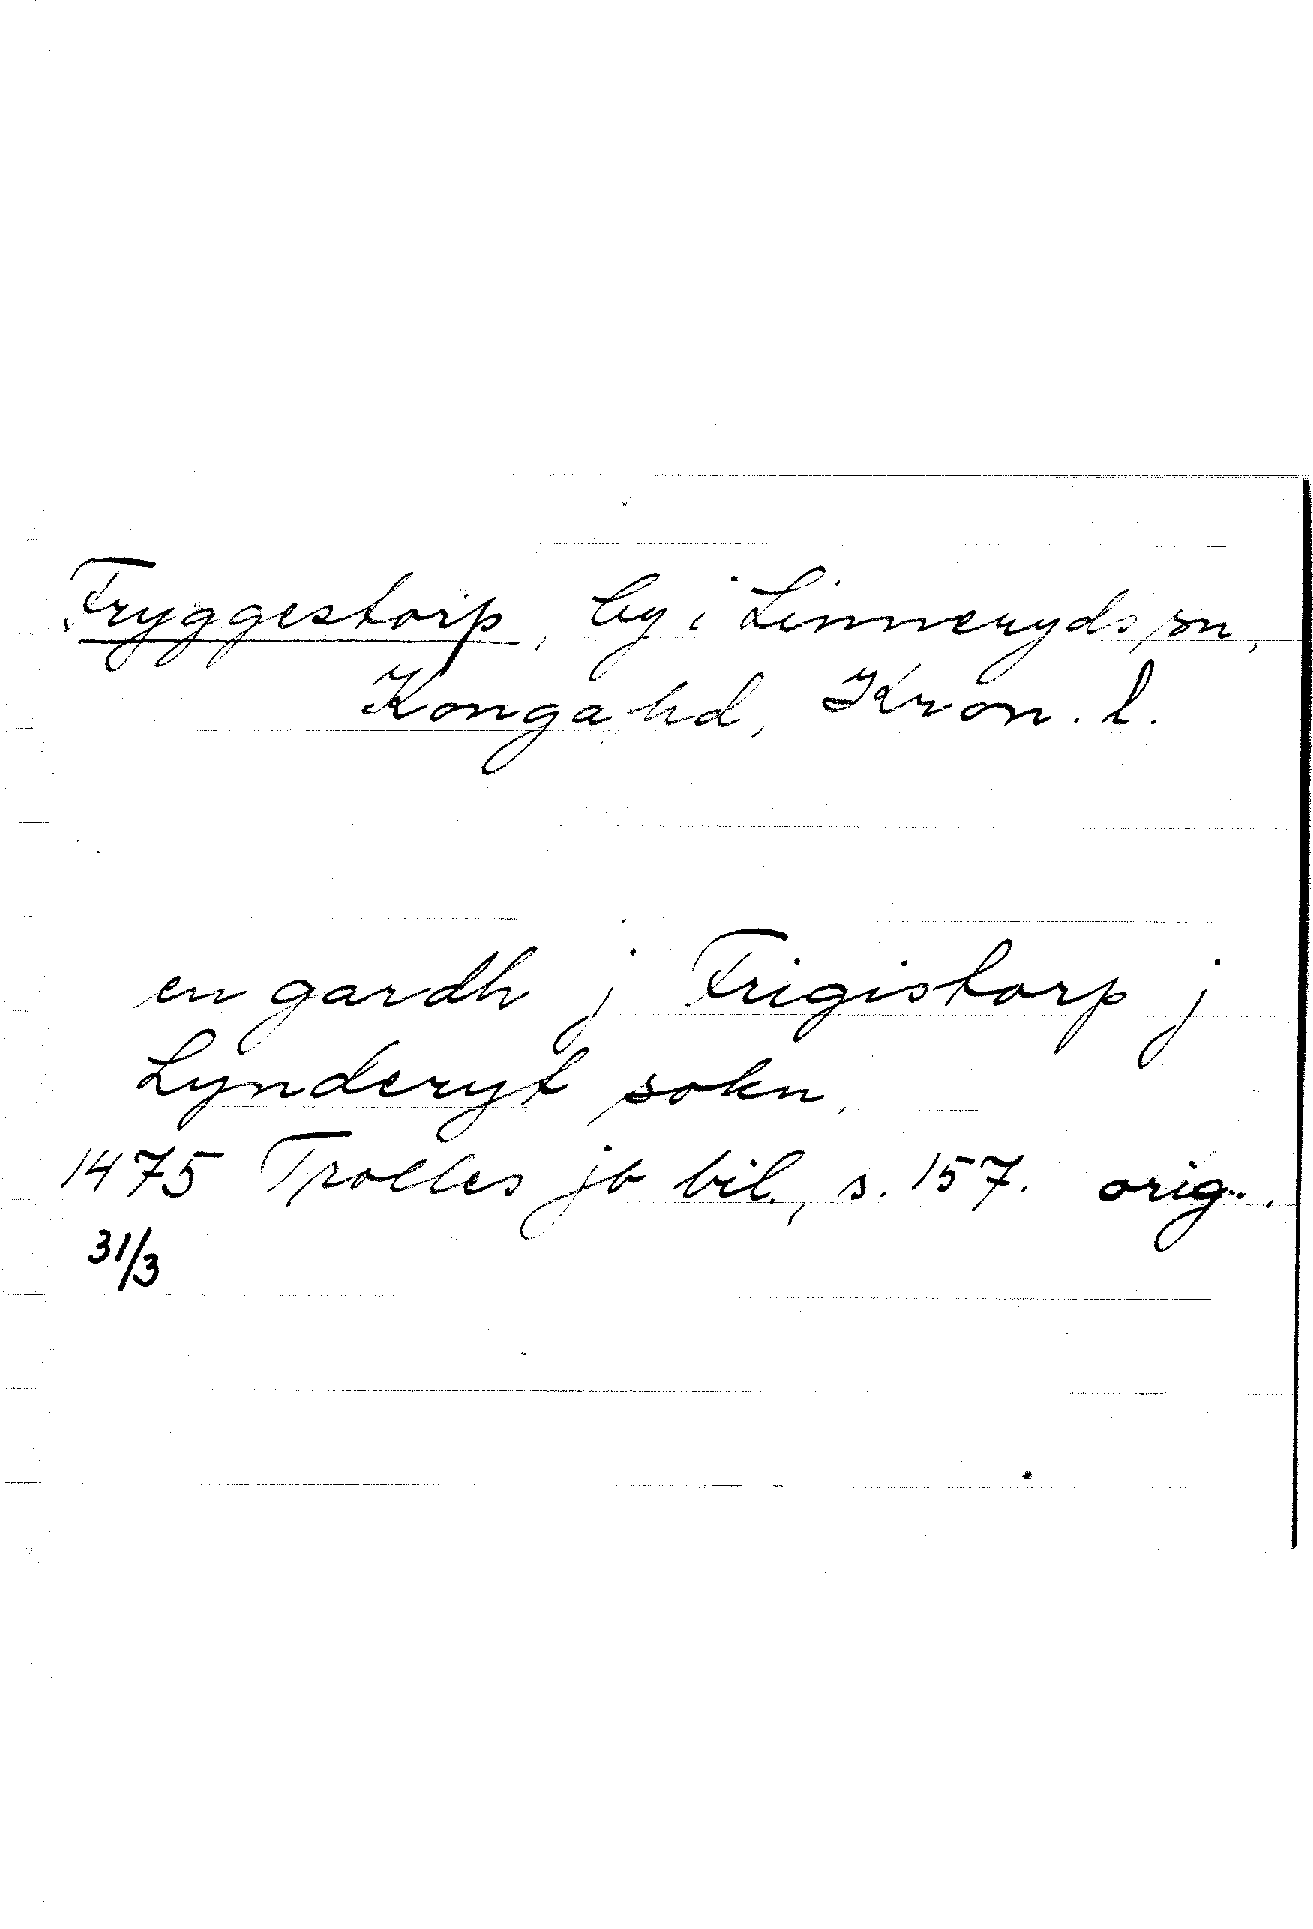 Fryggestorp, by i Linneryds sn,
Konga hd, Kron. l.
en gardh j Frigistorp j
Lynderyt sokn.
1475 Trolles jb bil., s. 157. orig.
31/3